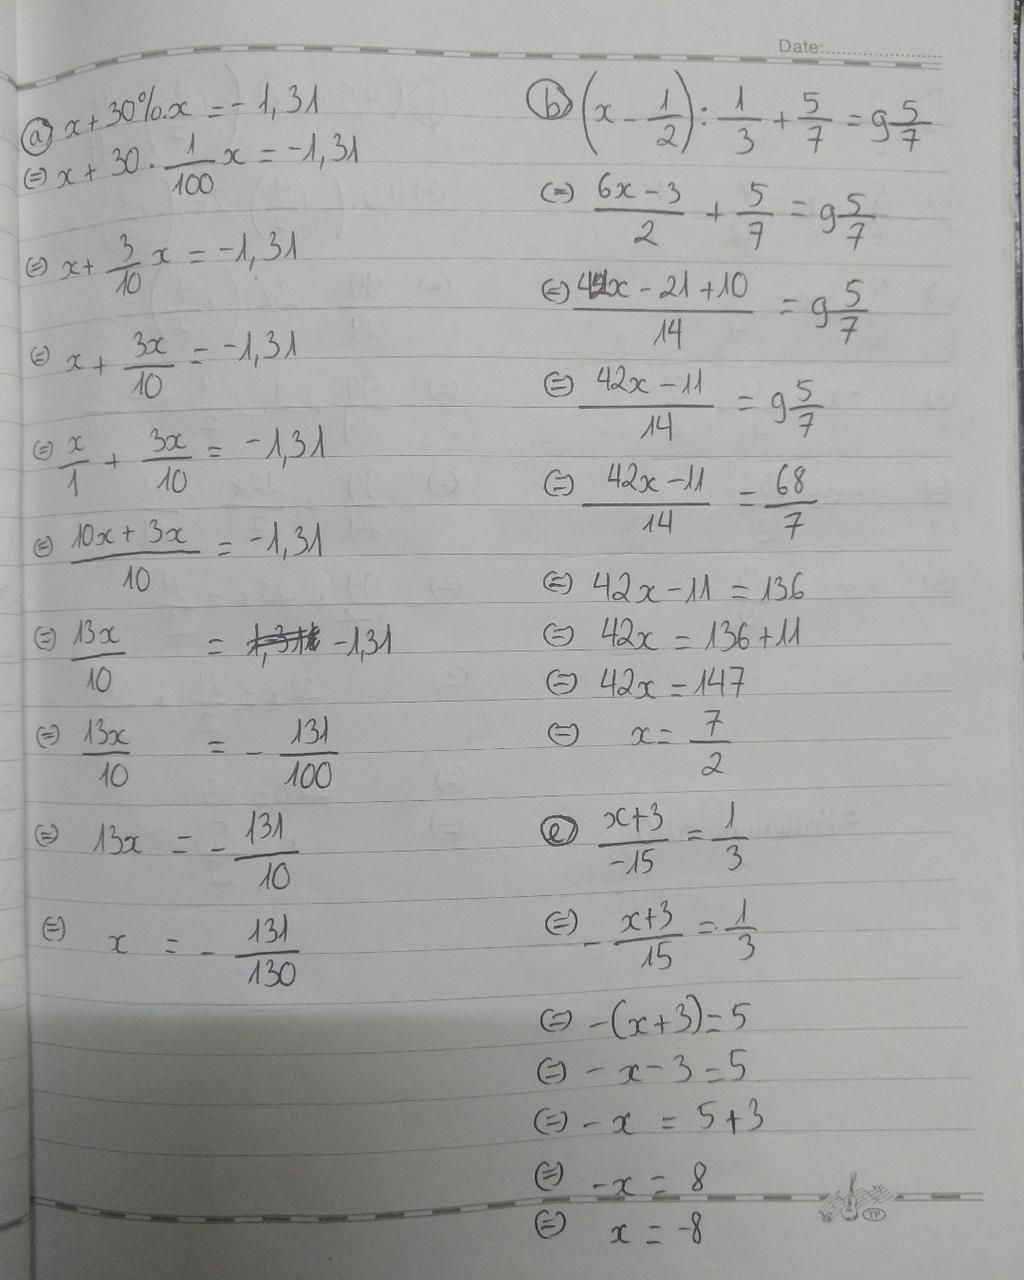 Date:
a) x + 30%.x = -1,31
(=) x + 30 . 1/100 x = -1,31
(=) x + 3/10 x = -1,31
(=) x + 3x/10 = -1,31
(=) x/1 + 3x/10 = -1,31
(=) (10x + 3x)/10 = -1,31
(=) 13x/10 = -1,31
(=) 13x/10 = - 131/100
(=) 13x = - 131/10
(=) x = - 131/130
b) (x - 1/2) : 1/3 + 5/7 = 9 5/7
(=) (6x - 3)/2 + 5/7 = 9 5/7
(=) (42x - 21 + 10)/14 = 9 5/7
(=) (42x - 11)/14 = 9 5/7
(=) (42x - 11)/14 = 68/7
(=) 42x - 11 = 136
(=) 42x = 136 + 11
(=) 42x = 147
(=) x = 7/2
e) (x+3)/-15 = 1/3
(=) - (x+3)/15 = 1/3
(=) -(x+3) = 5
(=) - x - 3 = 5
(=) - x = 5 + 3
(=) -x = 8
(=) x = -8
TP